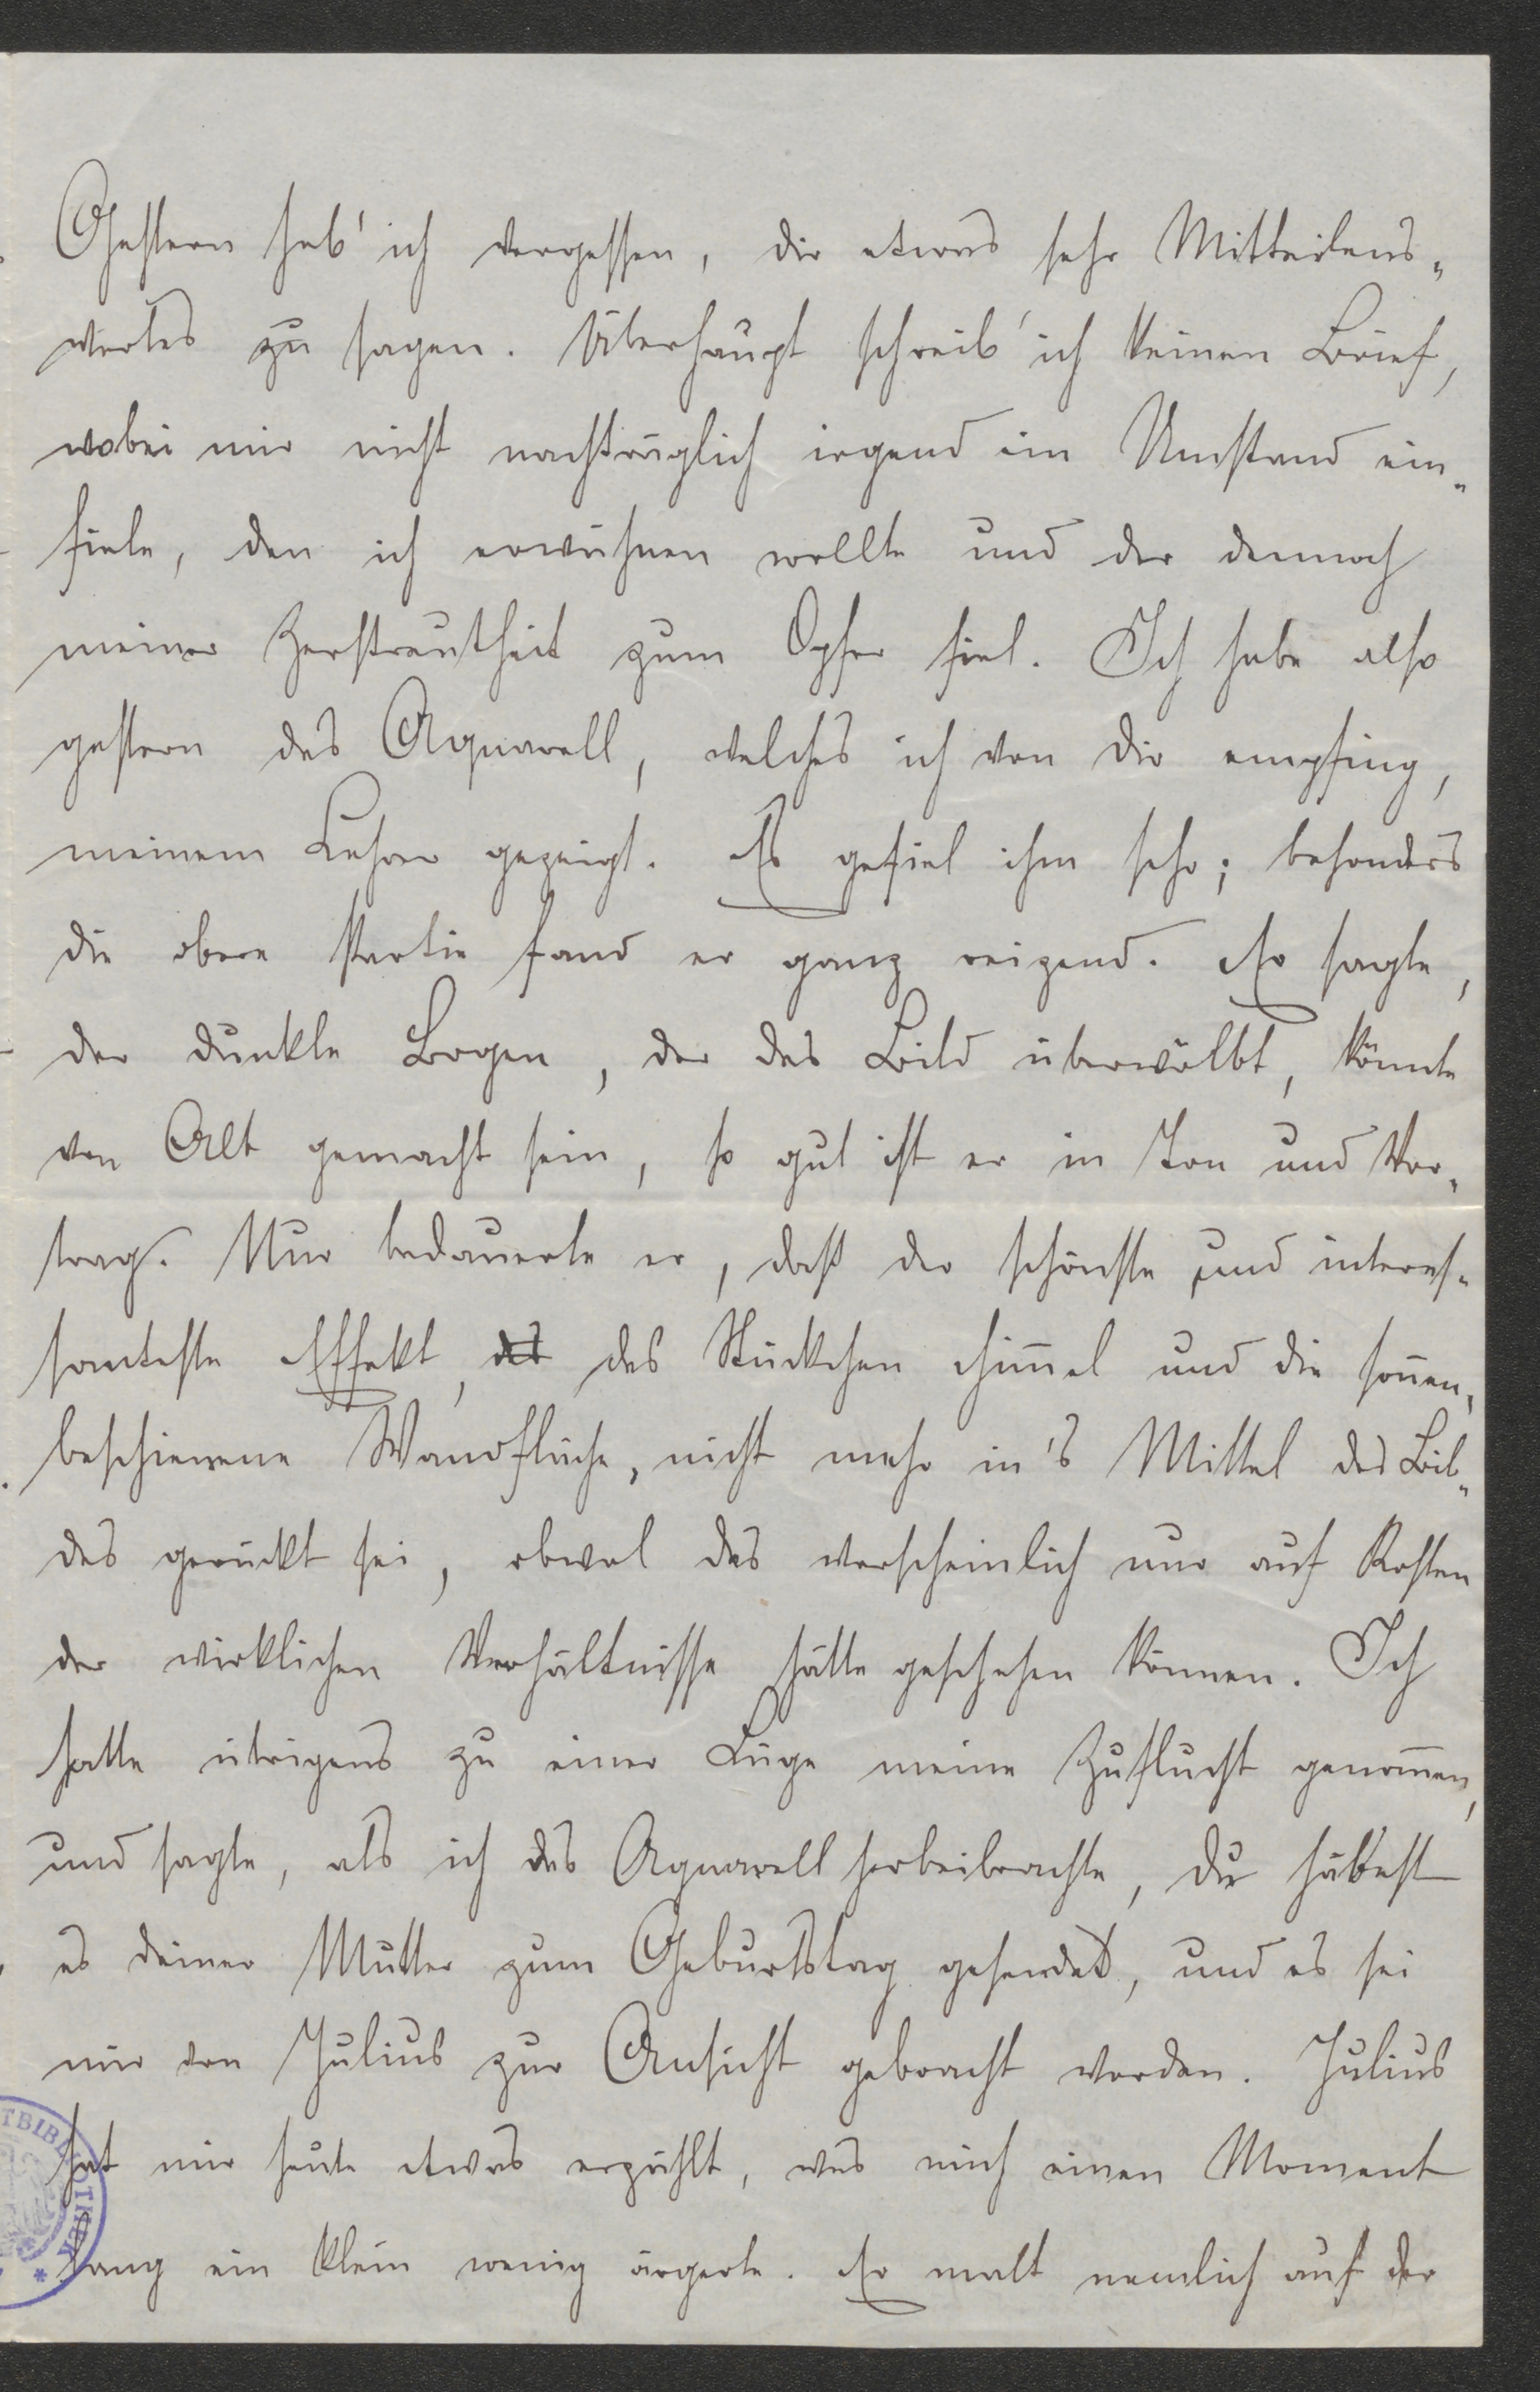 Gestern hab' ich vergessen, dir etwas sehr Mitteilens-
wertes zu sagen. Überhaupt schreib' ich keinen Brief,
wobei mir nicht nachträglich irgend ein Umstand ein-
fiele, den ich erwähnen wollte und der dennoch
meiner Zerstreutheit zum Opfer fiel. Ich habe also
gestern das Aquarell, welches ich von dir empfing,
meinem Lehrer gezeigt. Es gefiel ihm sehr; besonders
die obere Partie fand er ganz reizend. Er sagte,
der dunkle Bogen, der das Bild überwölbt, könnte
von Alt gemacht sein, so gut ist er in Ton und Vor-
trag. Nur bedauerte er, daß der schönste und interes-
santeste Effekt, das das Stückchen Him̄el und die son̄en-
beschienene Wandfläche, nicht mehr in's Mittel des Bil-
des gerückt sei, obwol das warscheinlich nur auf Kosten
der wirklichen Verhältnisse hätte geschehen können. Ich
hatte übrigens zu einer Lüge meine Zuflucht genom̄en,
und sagte, als ich das Aquarell herbeibrachte, du habest
es deiner Mutter zum Geburtstag gesendet, und es sei
mir von Julius zur Ansicht gebracht worden. Julius
hat mir heute etwas erzählt, was mich einen Moment
lang ein klein wenig ärgerte. Er malt nemlich auf der
TBIBLIOTHEK *